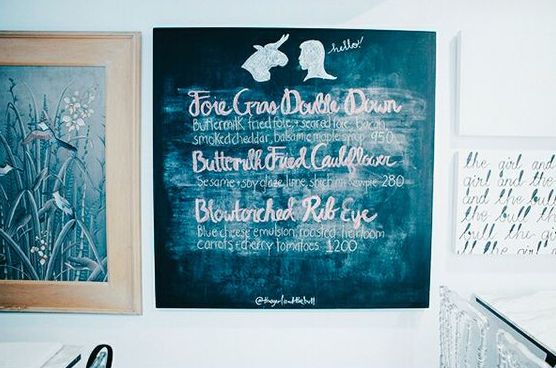 hello!
Foie Gras Double Down
Buttermilk fried foie, + seared foie, bacon,
smoked cheddar, balsamic maple syrup 950
Buttermilk Fried Cauliflower
Sesame + soy glaze, lime, 280
Blowtorched Rib Eye
Blue cheese emulsion, roasted heirloom
carrots + cherry tomatoes 1200
@thegirlandthebull
the girl and the
girl and the
and the bull
the bull the
bull the girl